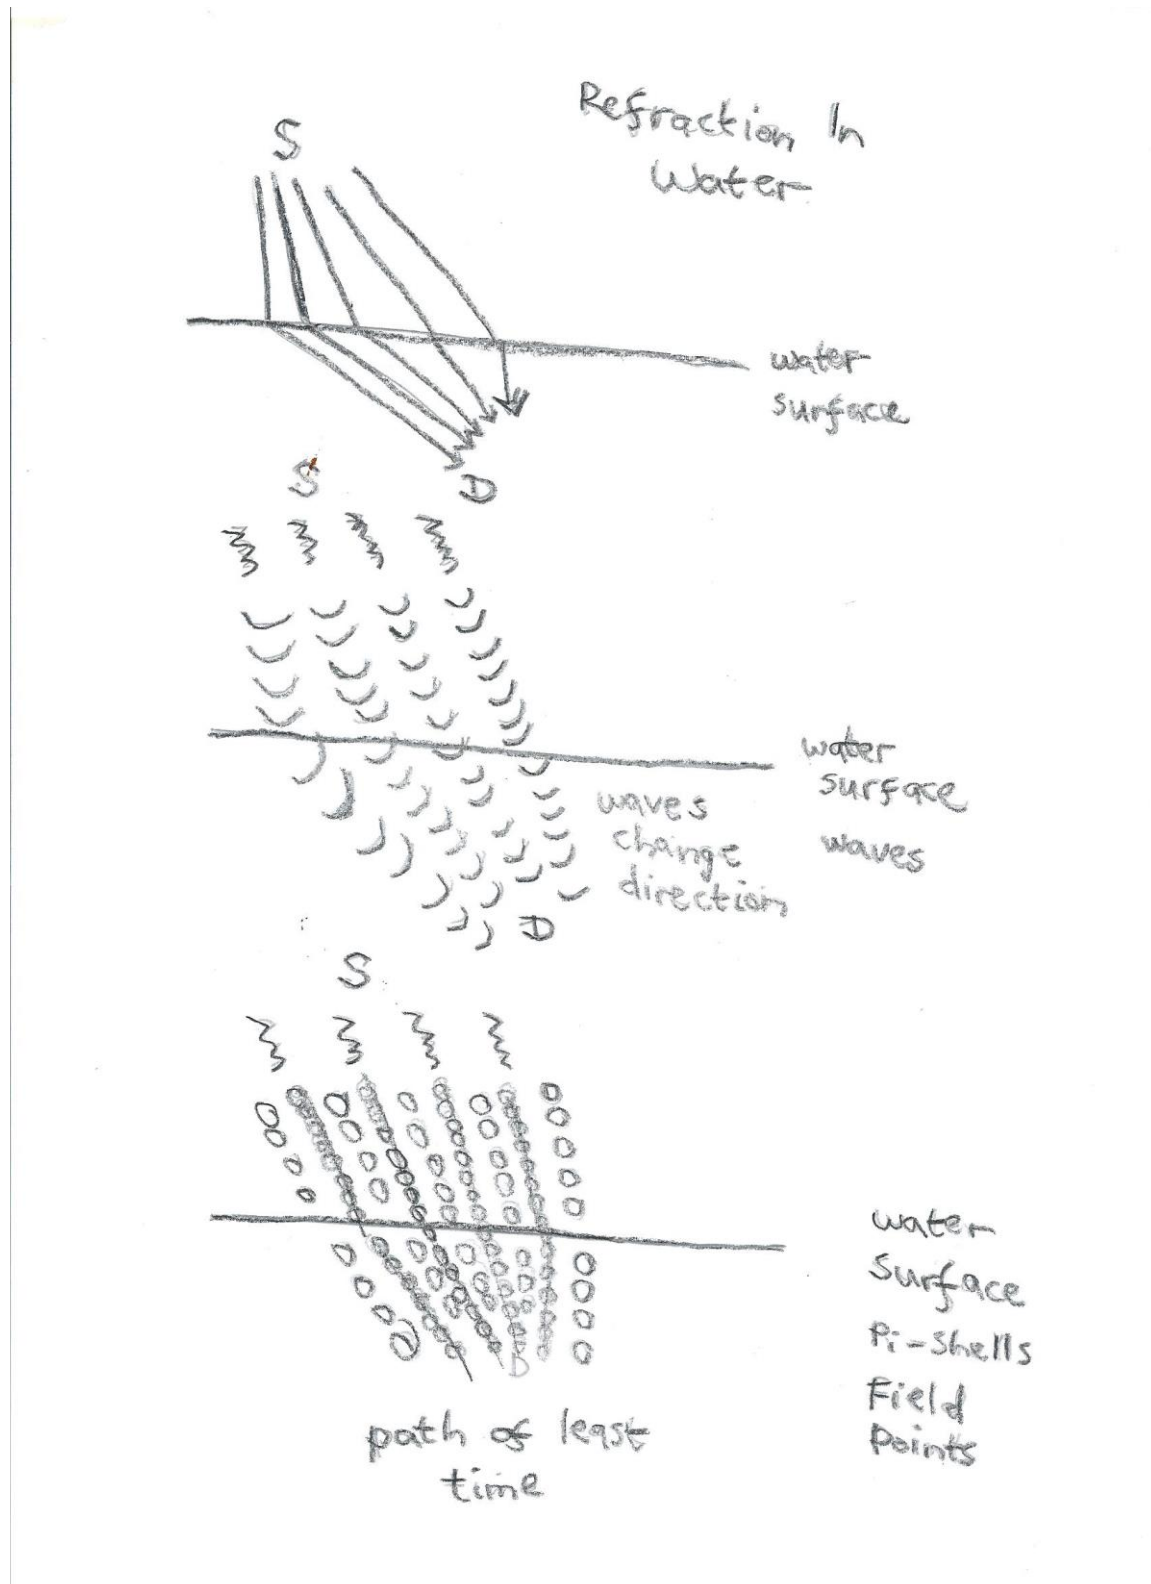 Refraction In
Water
S
water
surface
D
S
water
surface
waves
change
direction
waves
D
S
water
surface
Pi-Shells
Field
Points
D
path of least
time